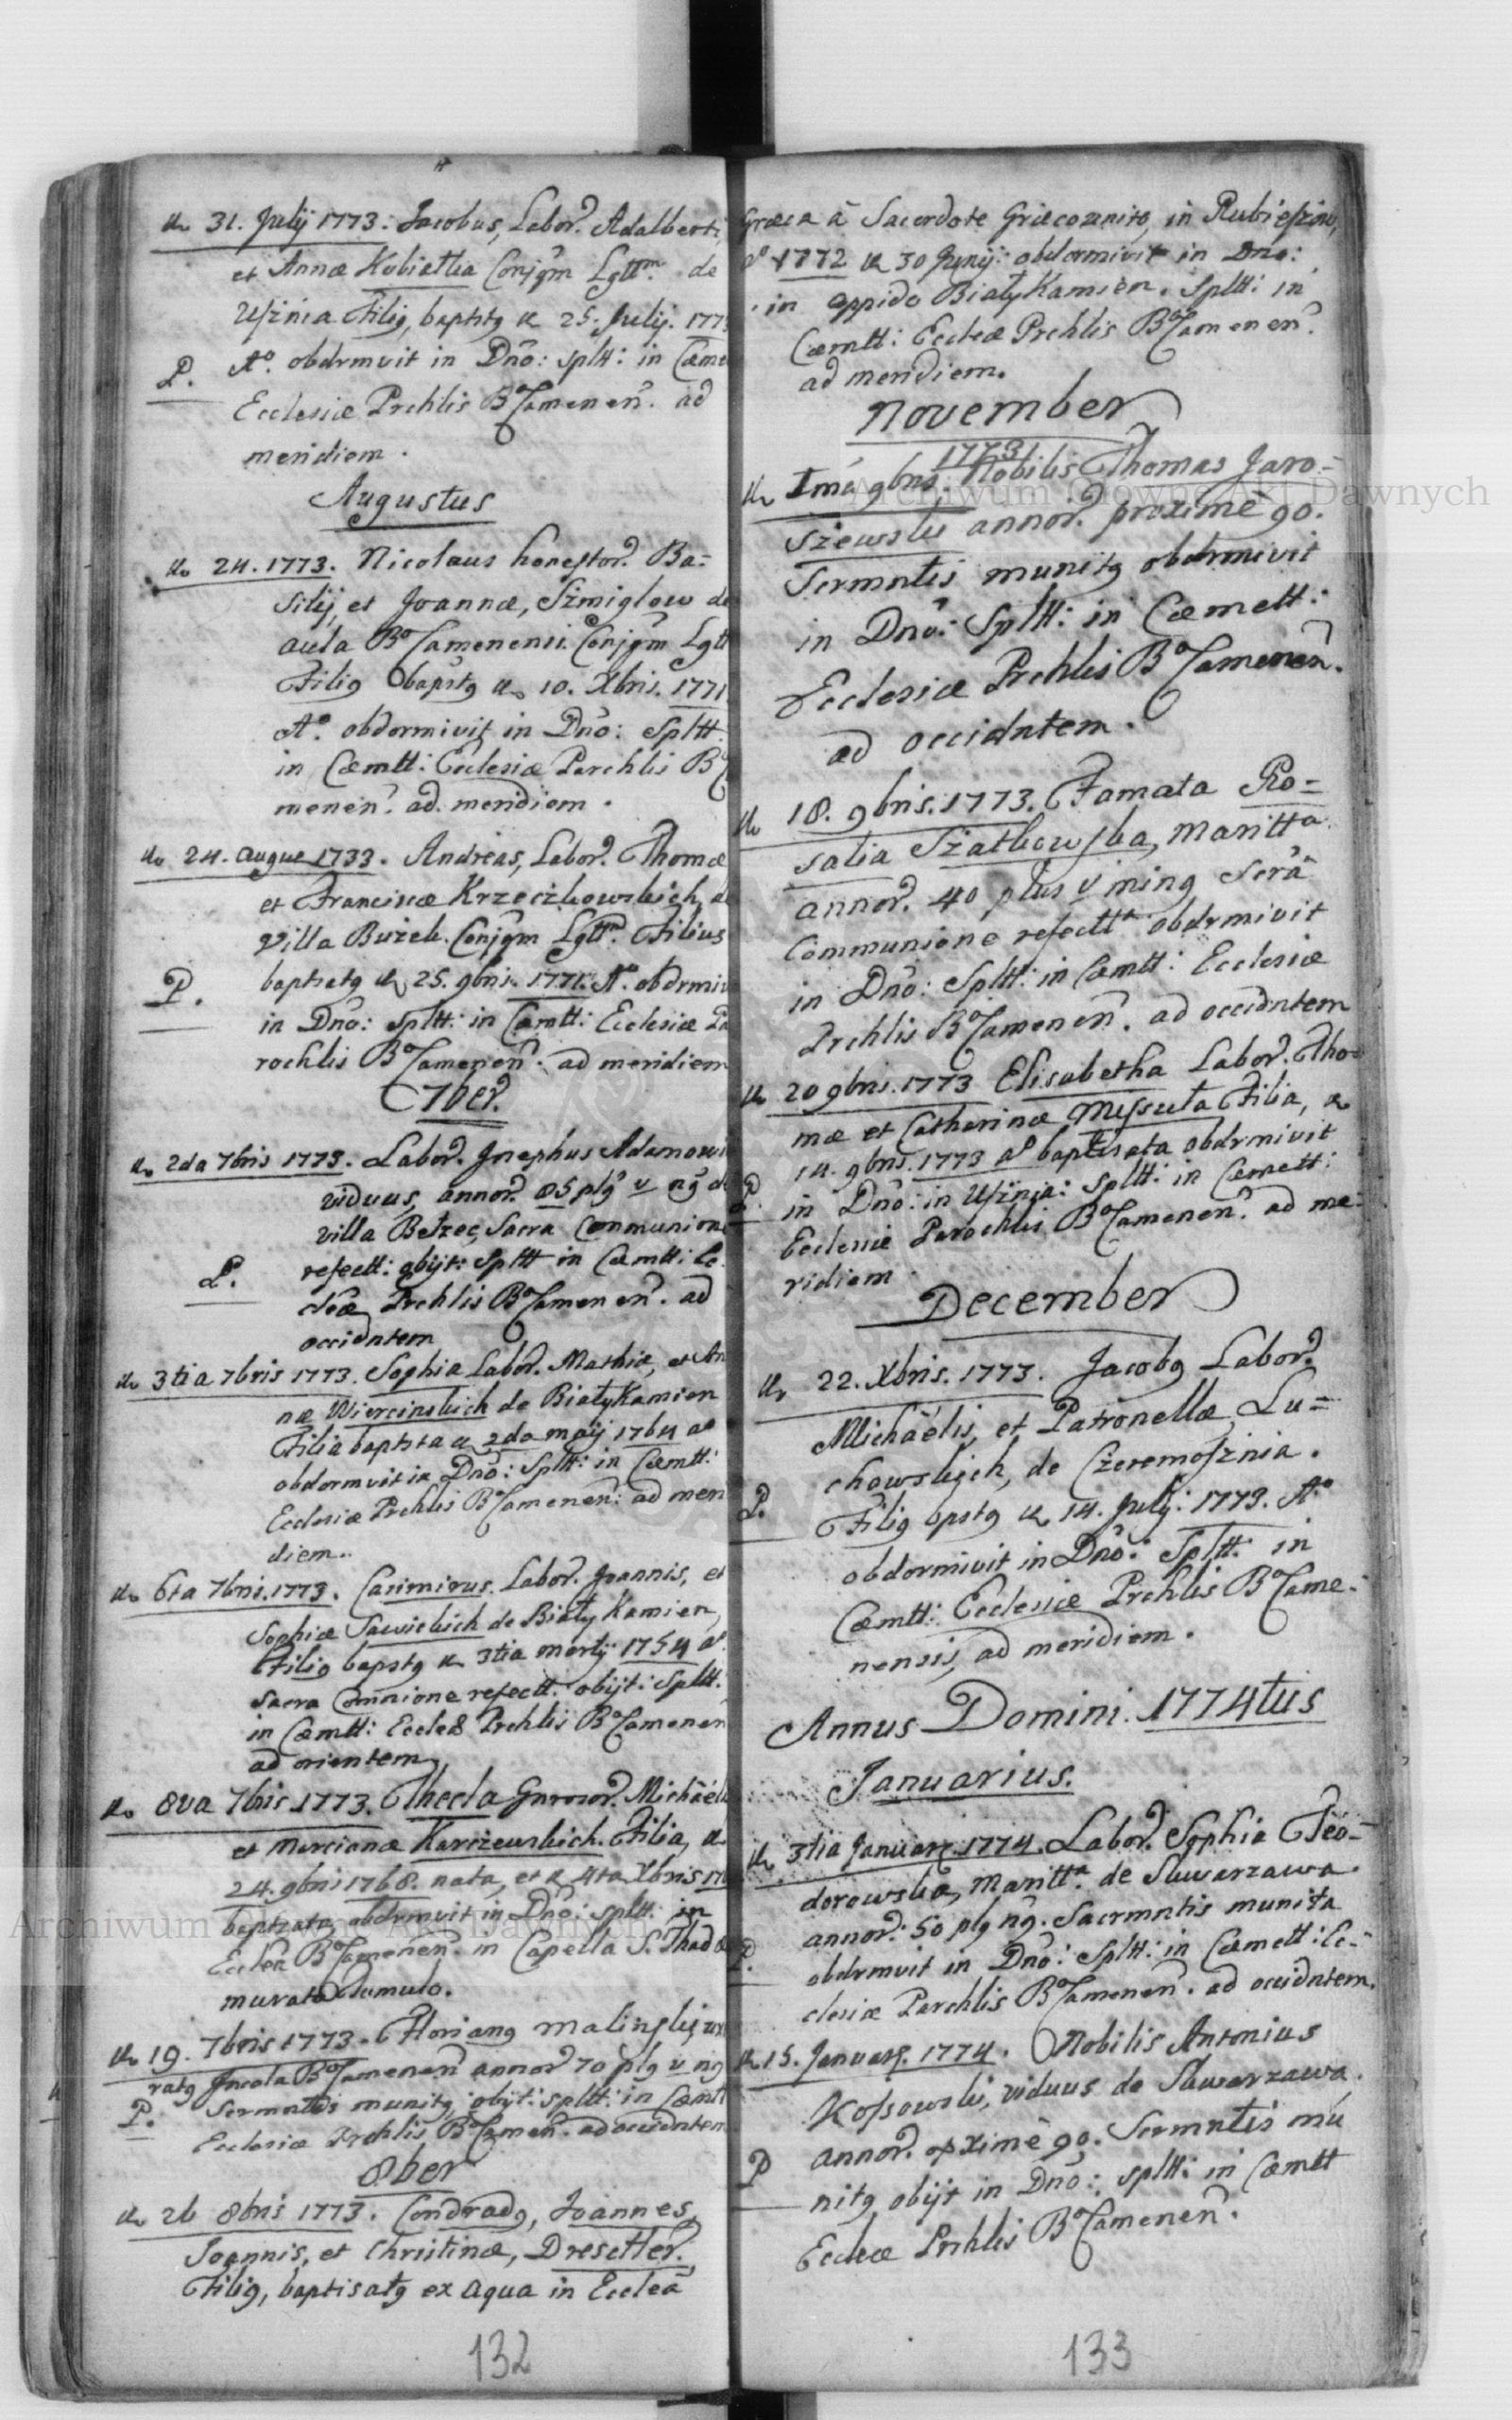 31. Julij 1773: Jacobus, Labor. Adalberti,
et Annæ Kubiatka Conjgm Lgttm. de
Uſznia Filig, baptstg 25. Julij. 177
P. Aº. obdrmvit in Dño: splt: in Cæme
Ecclesiæ Prchlis BºCamenen̄. ad
meridiem.
Augustus
24. 1773. Nicolaus honestor. Ba=
silij, et Joannæ, Szmiglow de
aula BºCamenensi. Conjgm Lgtt
Filig bapstg 10. Xbris. 1771
Aº. obdormivit in Dño: Spltt.
in Cæmtt: Ecclesiæ Parchlis Bº
menen̄. ad. meridiem.
24. augue 1733. Andreas, Labor. Thomæ
et Franciscæ Krzeczkowskich, de
villa Buzek. Conjgm Lgttm. Filius
baptsatg 25. 9bris. 1771. Aº. obdrmiv
P.
in Dño: spltt: in Cæmtt: Ecclesiæ Pa
rochlis BºCamenen̄. ad meridiem
7ber.
2da 7bris 1773. Labor. Josephus Adamowi
viduus, annor. 85 plg v ng de
villa Bełzec, Sacra Communione
P. refectt: obijt: Spltt in Cæmtt: Ec
cleæ Prchlis BºCamenen̄. ad
occidntem
3tia 7bris 1773. Sophia Labor. Mathiæ, et An
næ Wiercinskich de BiałyKamien
Filia baptsta 2da maij 1764 aº
obdormvit in Dño: Spltt: in Cæmtt:
Ecclesiæ Prchlis BºCamenen̄: ad meri
diem..
6ta 7bris. 1773. Casimirus Labor. Joannis, et
Sophiæ Sawickich de Biały Kamien,
Filig bapstg 3tia martij 1754 aº
sacra Comnione refectt. obijt: Spltt.
in Cæmtt: Eccleæ Prchlis BºCamenen
ad orientem,
8va 7bris 1773. Thecla Gnrosor. Michäeli
et Marcianæ Karczewskich. Filia,
24. 9bris 1768. nata, et 4ta Xbris 17
baptsata, obdrmvit in Dño: spltt: in
Ecclea BºCamenen̄. in Capella S. Thadæ
murato tumulo.
19. 7bris 1773. Floriang Malinskij, ux
ratg Jncola BºCamenen̄ annor 70 plg v ng
P. Sermntis munitg, obijt: spltt: in Cæmtt
Ecclesiæ Prchlis BºCamen̄. ad occidntem
8ber
26 8bris 1773. Condradg, Joannes,
Joannis, et Christinæ, Dresctler.
Filig, baptisatg ex aqua in Ecclea
132
Græca à Sacerdote Græcounito, in Rubieſzow,
aº 1772 30 Junij: obdormivit in Dno:
in oppido BiałyKamien. Spltt: in
Cæmtt: Eccleæ Prchlis BºCamenen̄.
ad meridiem.
November
1773
Imâ 9bris. Nobilis Thomas Jaro=
szewski annor. proximè 90.
Sermntis munitg obdrmivit
in Dño: Spltt: in Cæmett:
Ecclesiæ Prchlis BºCamenen̄.
ad occidntem.
18. 9bris. 1773. Famata Ro=
salia Szatkowska, Marittª
annor. 40 plus v ming Scrâ
Communione refecttª obdrmivit
in Dño: Spltt: in Cæmtt: Ecclesiæ
Prchlis BºCamenen̄. ad occidntem
20 9bris. 1773 Elisabetha Labor. Tho=
mæ et Catharinæ Myſzuta Filia,
14. 9bris. 1773 aº baptisata obdrmivit
P. in Dño: in Uſznia: Spltt: in Cæmett:
Ecclesiæ Parochlis BºCamenen̄. ad me=
ridiem
December
22. Xbris. 1773. Jacobg Labor.
Michäelis, et Patronellæ, Lu=
chowskich, de Czeremoſznia.
P. Filig bpstg 14. Julij: 1773. Aº
obdormivit in Dño: Spltt: in
Cæmtt: Ecclesiæ Prchlis BºCame=
nensis, ad meridiem.
Annus Domini. 1774tus
Januarius.
3tia Januarij. 1774. Labor. Sophia Fëo=
dorowska, Marittª. de Skwarzawa.
annor: 50 plg ng. Sacrmntis munita
P. obdrmvit in Dño: Spltt: in Cæmett: Ec=
clesiæ Parchlis BºCamenen̄. ad occidntem.
15. Januarij. 1774. Nobilis Antonius
Koſsowski, viduus de Skwarzawa,
P annor. opximè 90. Sermntis mu
nitg obijt in Dño: spltt: in Cæmtt
Eccleæ Prchlis BºCamenen̄.
133
Archiwum Główne Akt Dawnych
Archiwum Główne Akt Dawnych